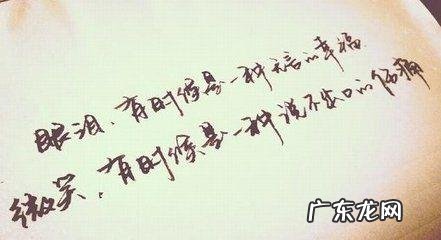 眼泪、有时候是一种无言的幸福
微笑、有时候是一种说不出口的伤痛
广东龙网